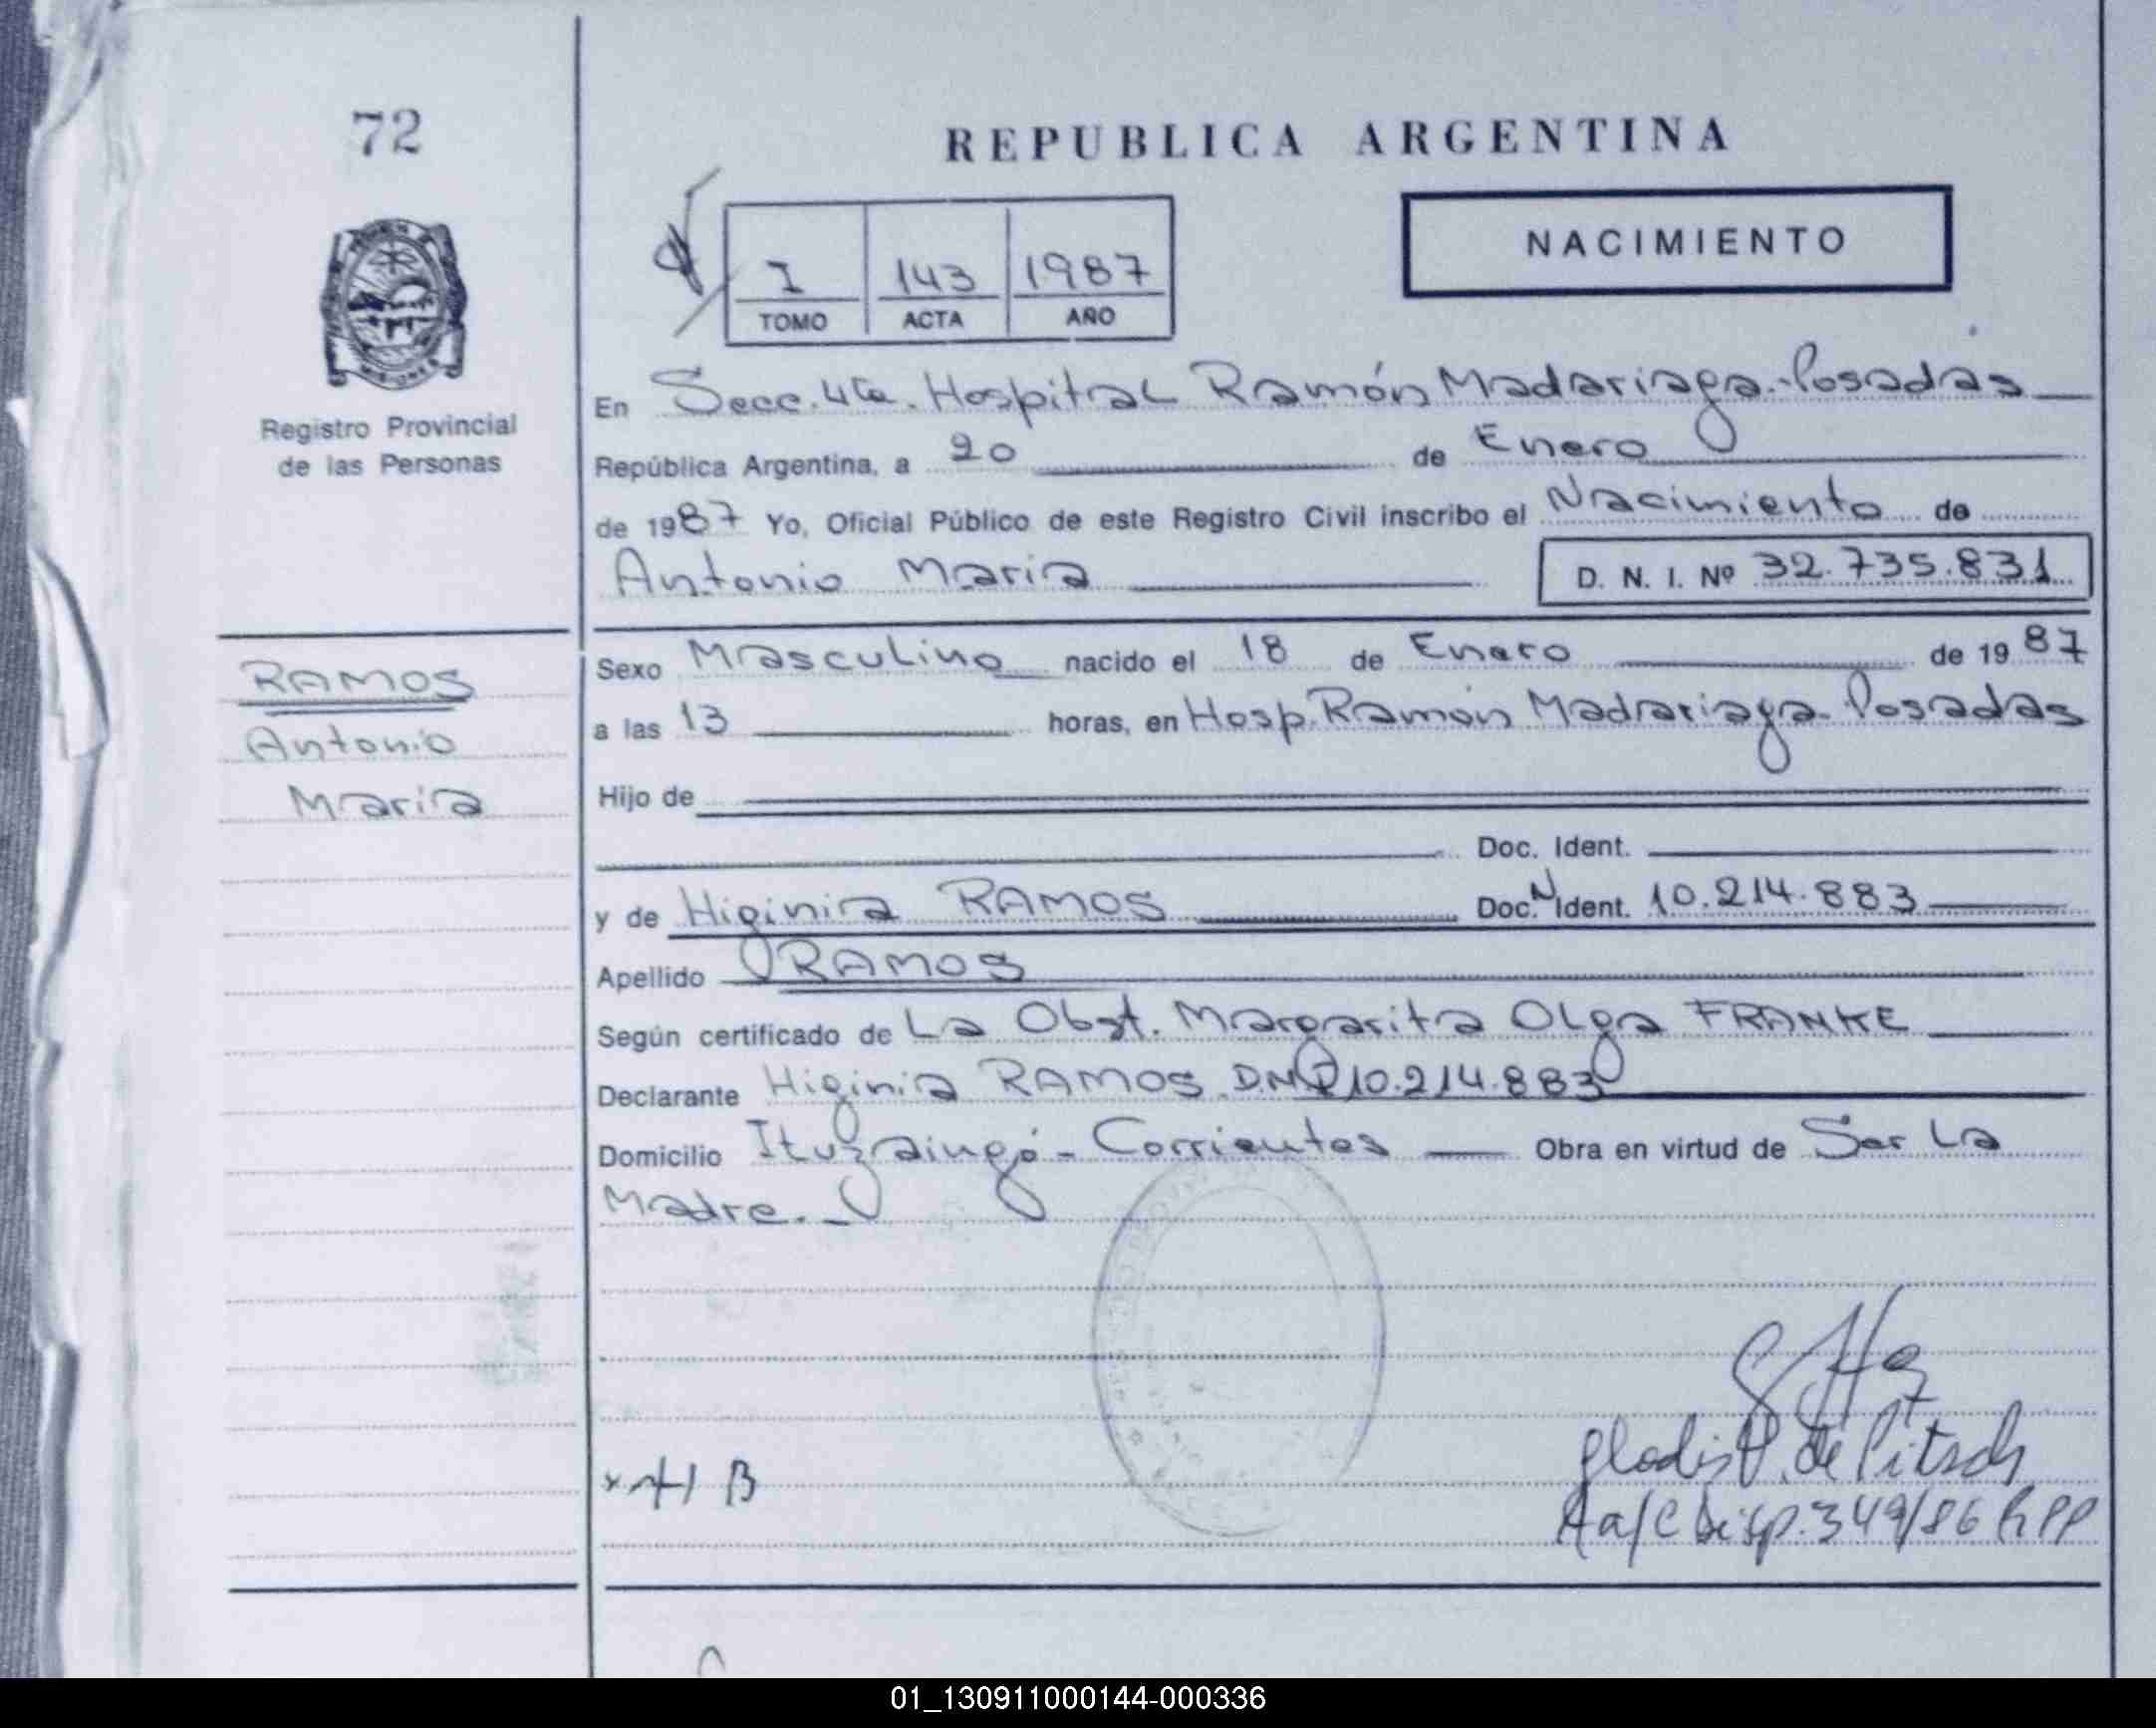 72
REPUBLICA ARGENTINA
NACIMIENTO
I 143 1987
TOMO ACTA AÑO
Registro Provincial
de las Personas
En Secc. 4ta. Hospital Ramón Madariaga - Posadas
República Argentina, a 20 de Enero
de 1987 Yo, Oficial Público de este Registro Civil inscribo el Nacimiento de
Antonio Maria D. N. I. Nº 32.735.831
RAMOS
Antonio
Maria
Sexo Masculino nacido el 18 de Enero de 1987
a las 13 horas, en Hosp. Ramón Madariaga - Posadas
Hijo de
Doc. Ident.
y de Higinia RAMOS Doc. N Ident. 10.214.883
Apellido RAMOS
Según certificado de La Obst. Margarita Olga FRANKE
Declarante Higinia RAMOS. D.N.I 10.214.883
Domicilio Ituzaingó - Corrientes Obra en virtud de Ser La
Madre.
B
de Pitsch
a/c Disp. 349/86 RPP
01_130911000144-000336